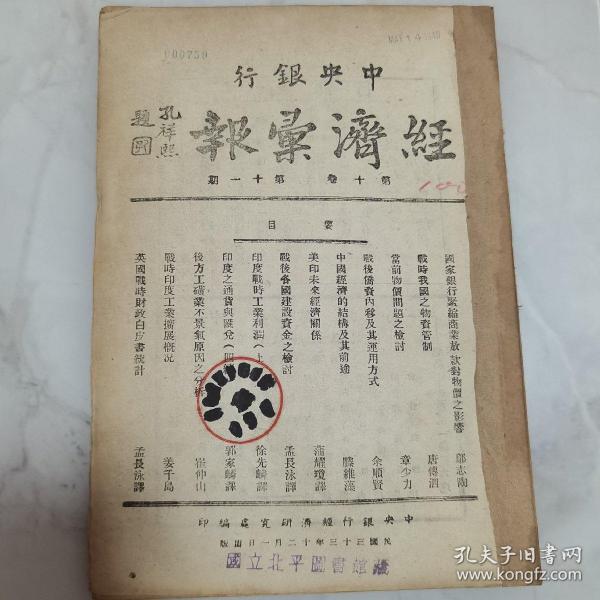 000750
中央銀行
經濟彙報
孔祥熙
題
第十卷 第十一期
100
要目
國家銀行緊縮商業放款對物價之影響 鄒志陶
戰時我國之物資管制 唐傳泗
當前物價問題之檢討 章少力
戰後僑資內移及其運用方式 余順賢
中國經濟的結構及其前途 滕維藻
美印未來經濟關係 蒲耀瓊譯
戰後各國建設資金之檢討 孟長泳譯
印度戰時工業利潤(上) 徐先麟譯
印度之通貨與匯兌(四) 郭家麟譯
後方工礦業不景氣原因之分析 崔仲山
戰時印度工業擴展概況 姜千島
英國戰時財政白皮書統計 孟長泳譯
中央銀行經濟研究處編印
民國三十三年十二月一日出版
國立北平圖書館藏
孔夫子旧书网
book.kongfz.com